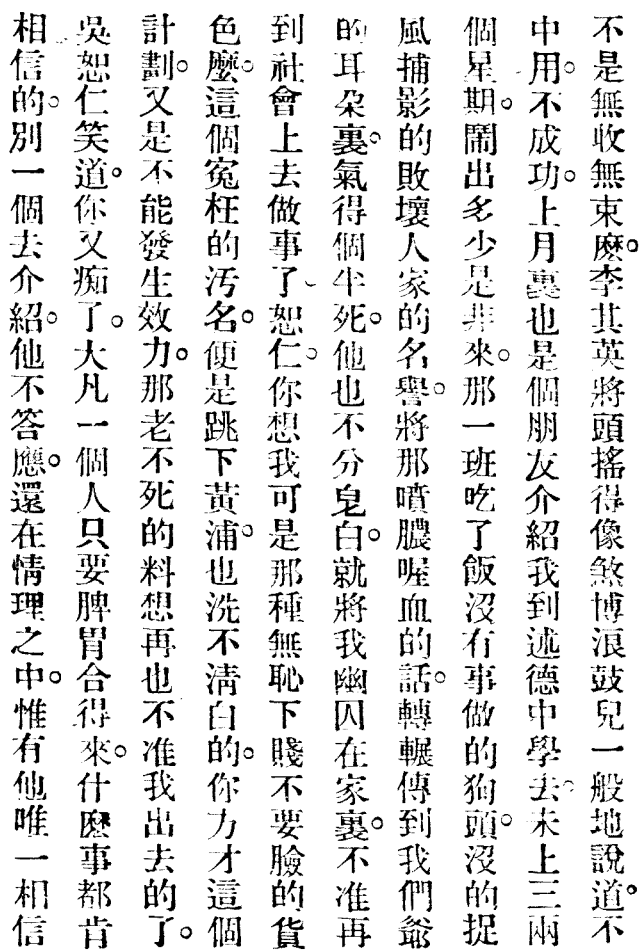 不是無收無束麽。李其英將頭搖得像煞博浪鼓兒一般地說道。不
中用。不成功。上月裏也是個朋友介紹我到述德中學去。未上三兩
個星期。鬧出多少是非來。那一班吃了飯沒有事做的狗頭。沒的捉
風捕影的敗壞人家的名譽。將那噴膿喔血的話。轉輾傳到我們爺
的耳朶裏。氣得個半死。他也不分皂白。就將我幽囚在家裏。不准再
到社會上去做事了。恕仁。你想我可是那種無恥下賤不要臉的貨
色麽。這個寃枉的汚名。便是跳下黃浦。也洗不淸白的。你方才這個
計劃。又是不能發生效力。那老不死的料想再也不准我出去的了。
吳恕仁笑道。你又痴了。大凡一個人只要脾胃合得來。什麽事都肯
相信的。別一個去介紹。他不答應。還在情理之中。惟有他唯一相信